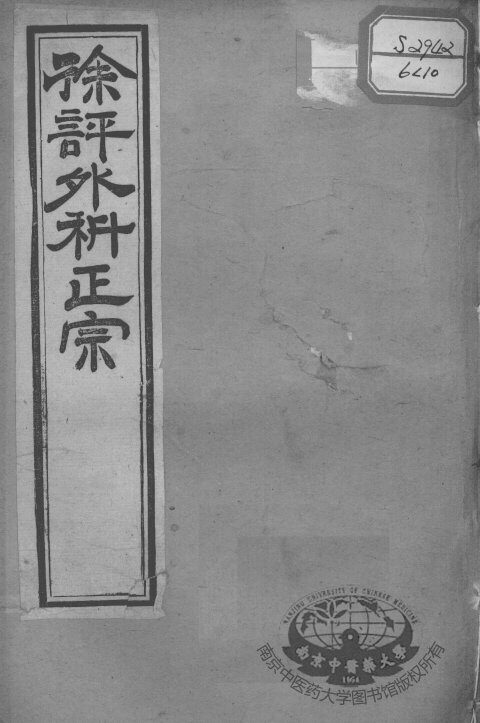 徐評外科正宗
S2942
6410
NANJING UNIVERSITY OF CHINESE MEDICINE
南京中醫藥大學
1954
南京中医药大学图书馆版权所有